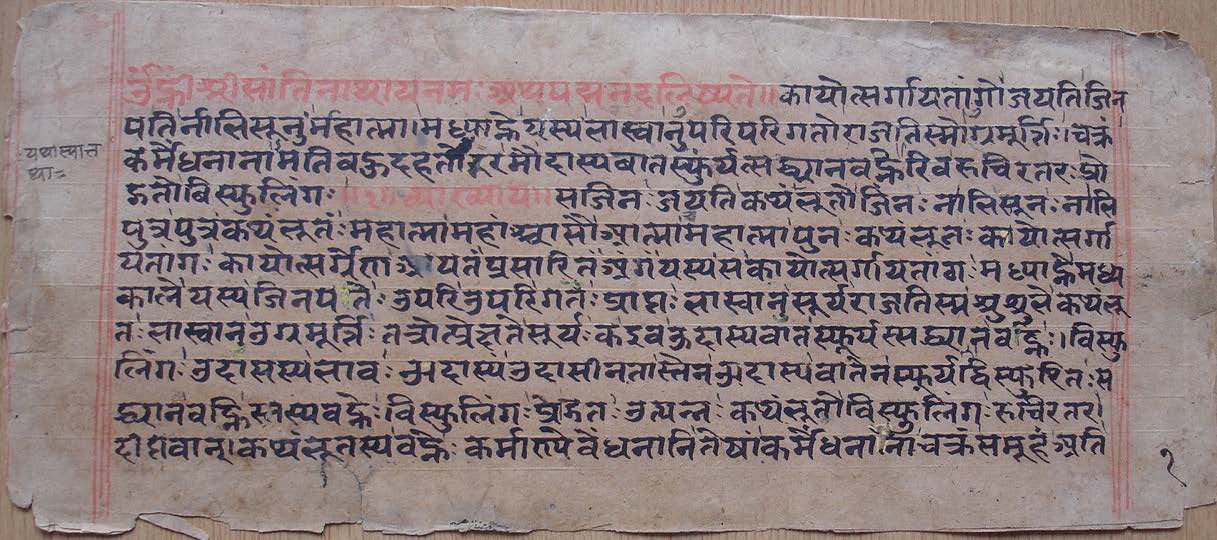 र्उं ह्री श्रीसांतिनाथायनमः अथपद्मनंदलिख्यते।। कायोत्सर्गायतांगो जयतिजिन
पतिर्नाभिसूनुर्महात्मा।मध्याह्नेयस्यभास्वानुपरिपरिगतोराजतिस्मोग्रमूर्त्तिः।चक्रं
कर्मैंधनानामतिबहुदहतोदूरमौदास्यवातस्फुर्यत्सद्ध्यानवह्नेरिवरुचिरतरःप्रो
द्गतोविस्फुलिंगः ।।१।। व्याख्या।। सजिनः जयतिकथंभूतोजिनः नाभिसूनः नाभि
पुत्रपुत्रंकथंभूतंः महात्मामहांश्चासौआत्मामहात्मापुनः कथंभूतः कायोत्सर्गा
यतांगः कायोत्सर्गे आयतंप्रसारितंअंगंयस्यसकायोत्सर्गायतांगः मध्याह्नेमध्य
कालेयस्यजिनपतेः उपरिउपरिगतः प्राप्तः भास्वान्सूर्यराजतिस्म
तः भास्वान्उग्रमूर्त्तिः तत्रोत्प्रेक्षतेसूर्यः कइवउदास्यवातस्फूर्य सद्ध्यानवह्नेः।विस्फु
लिंगः उदासस्यभावः औदास्यंउदासीनतास्तेनऔदास्यवातेनस्फूर्यद्विस्फुरितः स
द्ध्यानवह्निस्तस्यवह्नेः विस्फुलिंगः प्रोद्गतः उत्पन्नः कथंभूतोविस्फुलिंगः रुचिरतरः
दीप्तवान्।कथंभूतस्यवह्नेः कर्माण्येवेंधनानितेषांकर्मैंधनानांचक्रंसमूहंअति
यथास्थान
१